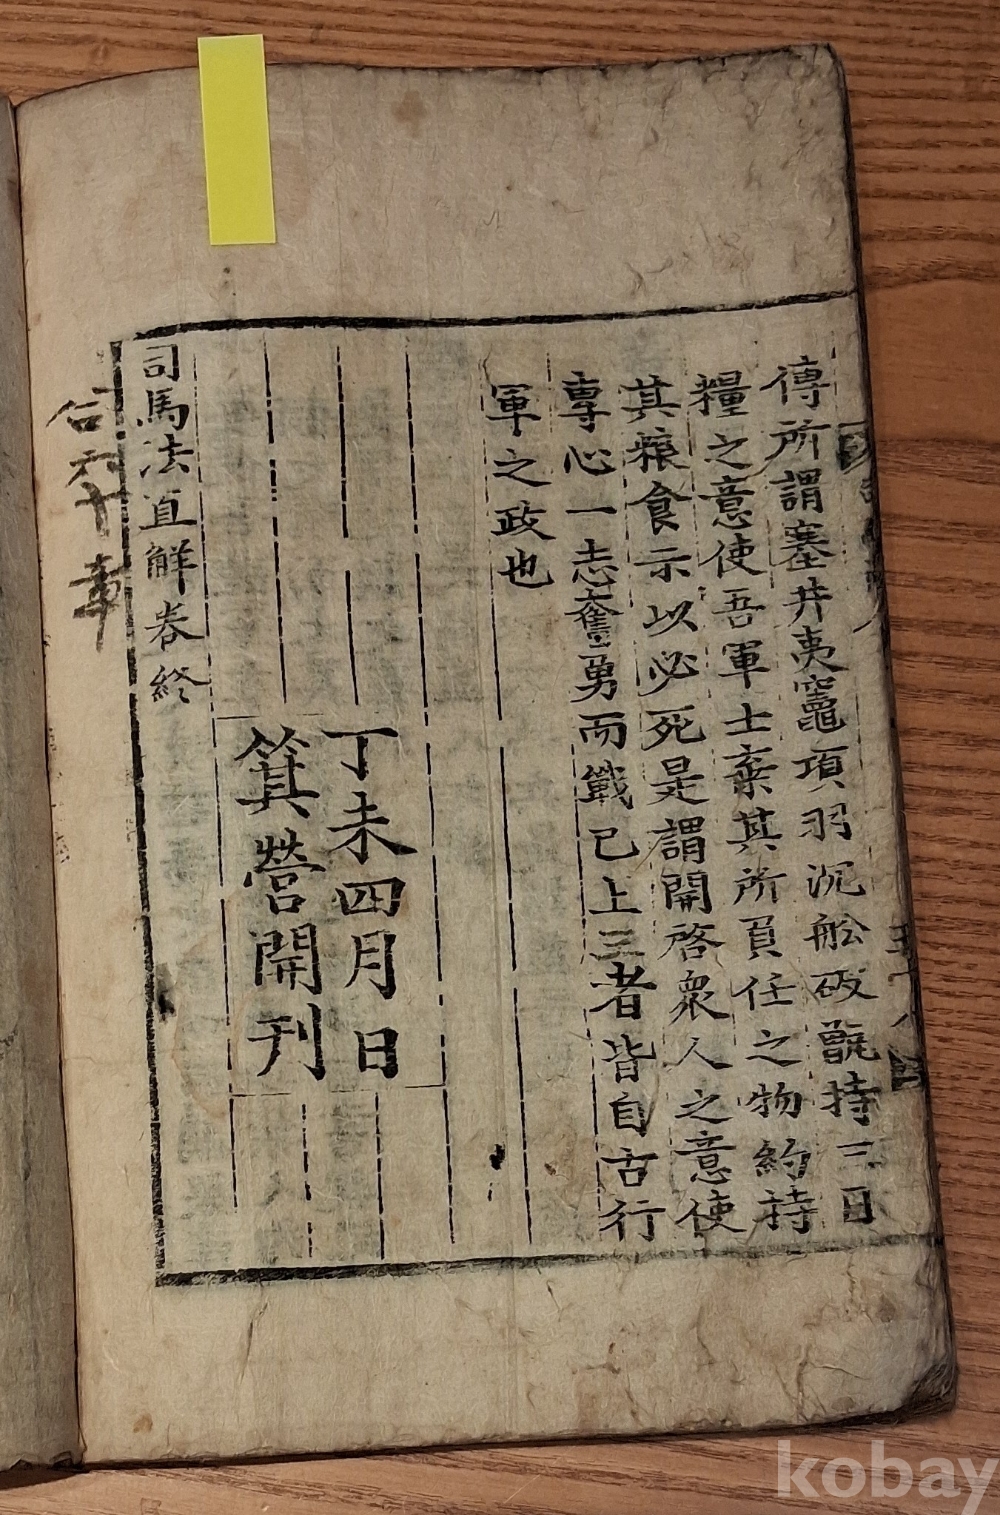 傳所謂塞井夷竈項羽沉舩破甑持三日
糧之意使吾軍士棄其所負任之物約持
其粮食示以必死是謂開啓衆人之意使
專心一志奮勇而戰已上三者皆自古行
軍之政也
丁未四月日
箕營開刊
司馬法直解卷終
合六十章
kobay